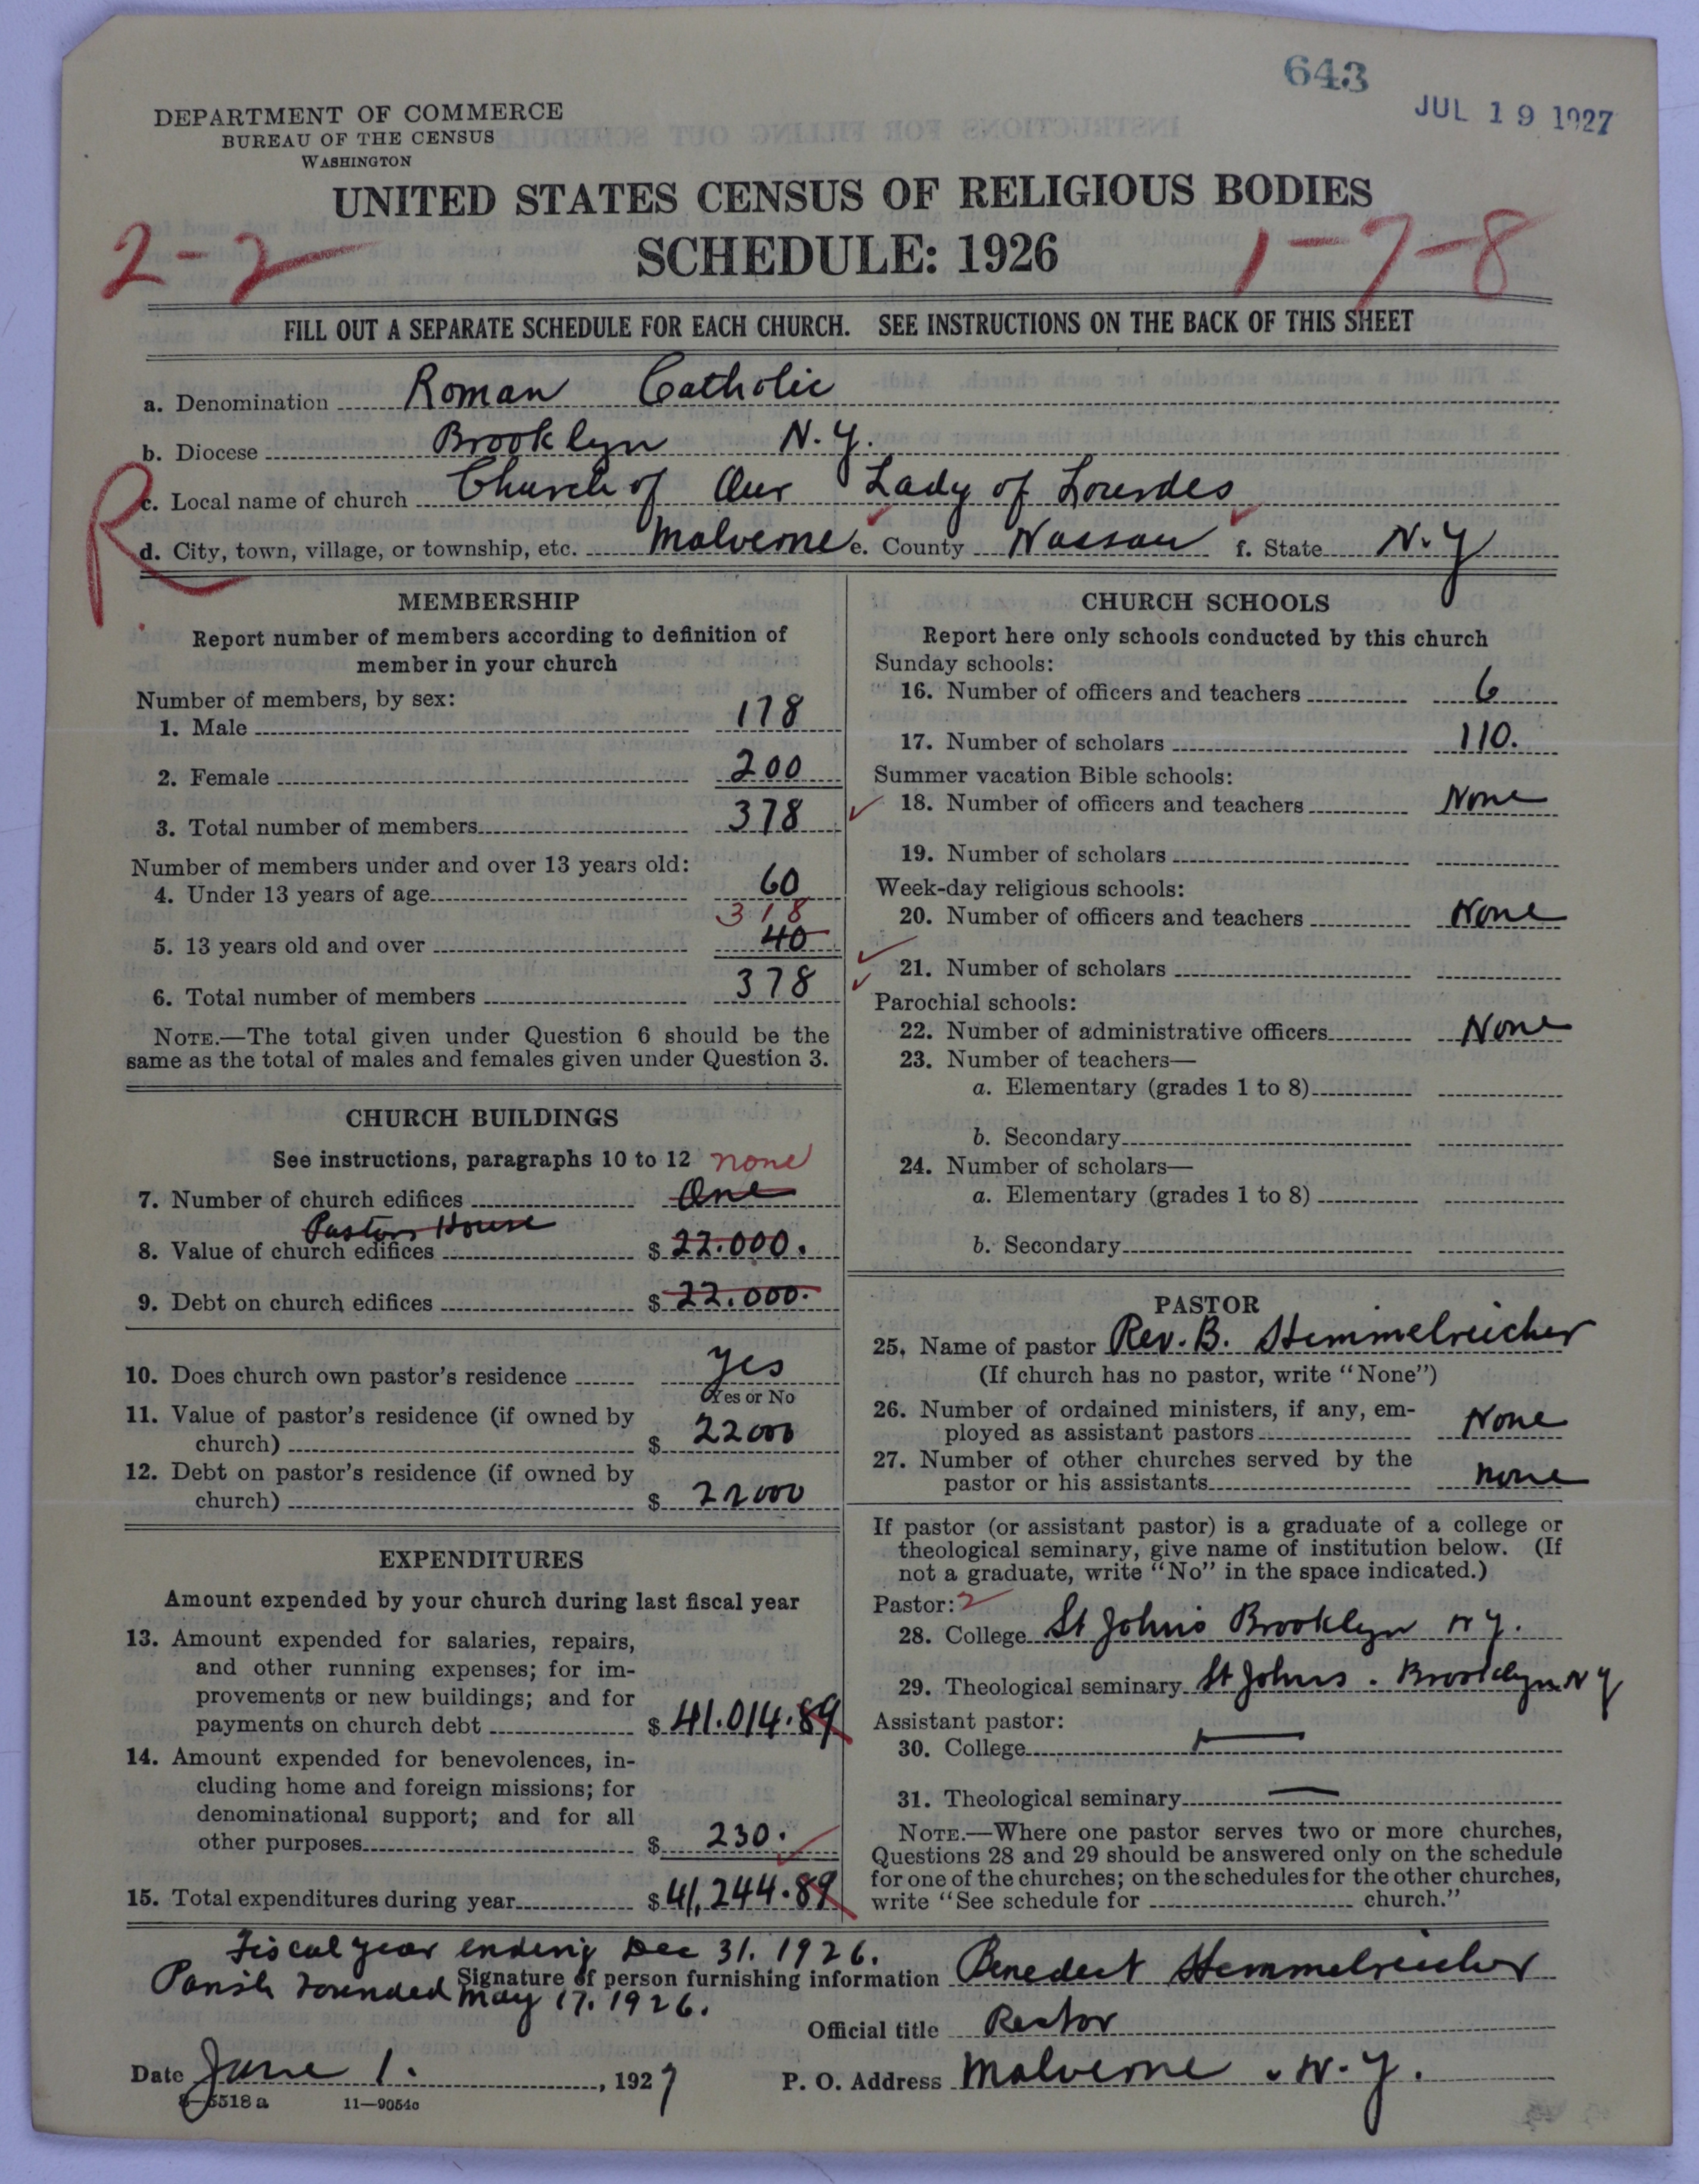 643
JUL 19 1927
DEPARTMENT OF COMMERCE
BUREAU OF THE CENSUS
WASHINGTON
UNITED STATES CENSUS OF RELIGIOUS BODIES
SCHEDULE: 1926
2-2
1-7-8
FILL OUT A SEPARATE SCHEDULE FOR EACH CHURCH. SEE INSTRUCTIONS ON THE BACK OF THIS SHEET
a. Denomination Roman Catholic
b. Diocese Brooklyn N.Y.
R
c. Local name of church Church of Our Lady of Lourdes
d. City, town, village, or township, etc. Malverne e. County Nassau f. State N.Y
MEMBERSHIP
Report number of members according to definition of
member in your church
Number of members, by sex:
1. Male 178
2. Female 200
3. Total number of members 378
Number of members under and over 13 years old:
4. Under 13 years of age 60
318
5. 13 years old and over 40
6. Total number of members 378
NOTE.—The total given under Question 6 should be the
same as the total of males and females given under Question 3.
CHURCH BUILDINGS
See instructions, paragraphs 10 to 12 none
7. Number of church edifices One
Pastors House
8. Value of church edifices $ 22.000.
9. Debt on church edifices $ 22.000.
10. Does church own pastor's residence yes
Yes or No
11. Value of pastor's residence (if owned by
church) $ 22000
12. Debt on pastor's residence (if owned by
church) $ 22000
EXPENDITURES
Amount expended by your church during last fiscal year
13. Amount expended for salaries, repairs,
and other running expenses; for im-
provements or new buildings; and for
payments on church debt $ 41.014.89
14. Amount expended for benevolences, in-
cluding home and foreign missions; for
denominational support; and for all
other purposes $ 230.
15. Total expenditures during year $ 41,244.89
CHURCH SCHOOLS
Report here only schools conducted by this church
Sunday schools:
16. Number of officers and teachers 6
17. Number of scholars 110.
Summer vacation Bible schools:
18. Number of officers and teachers None
19. Number of scholars
Week-day religious schools:
20. Number of officers and teachers None
21. Number of scholars
Parochial schools:
22. Number of administrative officers None
23. Number of teachers—
a. Elementary (grades 1 to 8)
b. Secondary
24. Number of scholars—
a. Elementary (grades 1 to 8)
b. Secondary
PASTOR
25. Name of pastor Rev. B. Hemmelreicher
(If church has no pastor, write "None")
26. Number of ordained ministers, if any, em-
ployed as assistant pastors None
27. Number of other churches served by the
pastor or his assistants none
If pastor (or assistant pastor) is a graduate of a college or
theological seminary, give name of institution below. (If
not a graduate, write "No" in the space indicated.)
Pastor: 2
28. College St Johns Brooklyn N Y.
29. Theological seminary St Johns. Brooklyn N Y
Assistant pastor:
30. College —
31. Theological seminary —
NOTE.—Where one pastor serves two or more churches,
Questions 28 and 29 should be answered only on the schedule
for one of the churches; on the schedules for the other churches,
write "See schedule for church."
Fiscal year ending Dec 31. 1926.
Parish Founded May 17. 1926.
Signature of person furnishing information Benedict Hemmelreicher
Official title Rector
Date June 1. , 1927
P. O. Address Malverne . N.Y.
8—5518 a 11—9054c